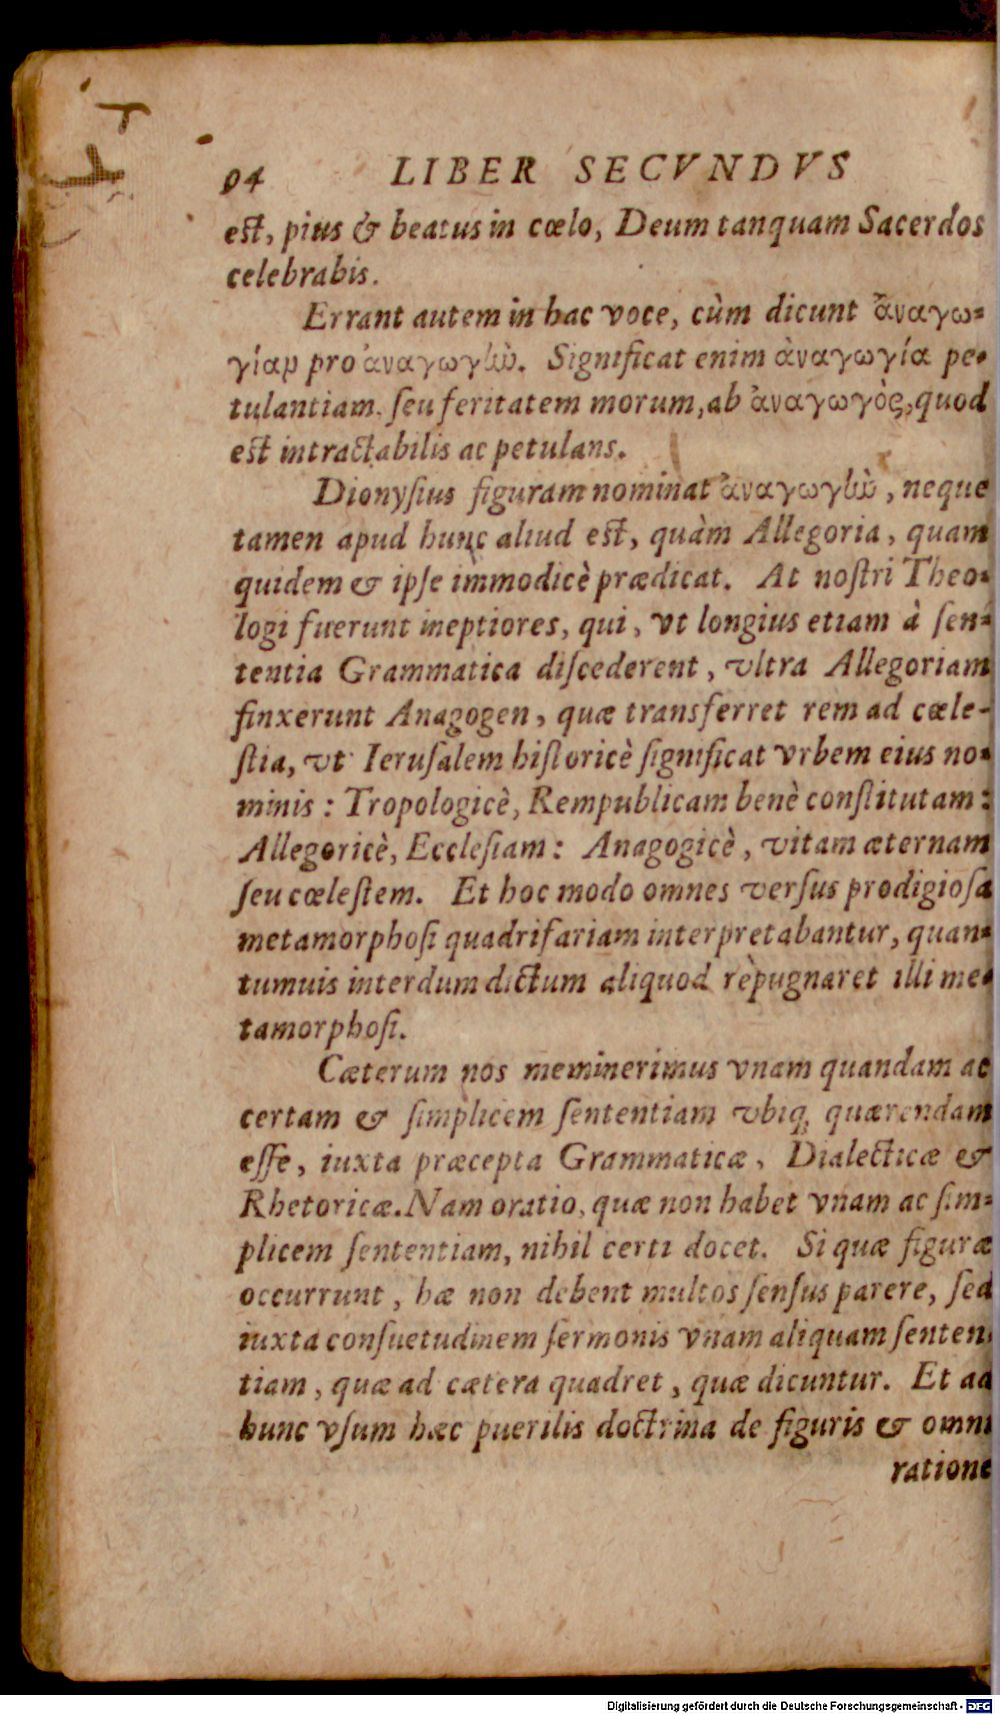 94 LIBER SECVNDVS
est, pius & beatus in cœlo, Deum tanquam Sacerdos
celebrabis.
Errant autem in hac voce, cùm dicunt ἀναγω-
γίαν pro ἀναγωγὴν. Significat enim ἀναγωγία pe-
tulantiam, seu feritatem morum, ab ἀναγωγὸς, quod
est intractabilis ac petulans.
Dionysius figuram nominat ἀναγωγὴν, neque
tamen apud hunc aliud est, quàm Allegoria, quam
quidem & ipse immodicè prædicat. At nostri Theo-
logi fuerunt ineptiores, qui, vt longius etiam à sen-
tentia Grammatica discederent, vltra Allegoriam
finxerunt Anagogen, quæ transferret rem ad cœle-
stia, vt Ierusalem historicè significat vrbem eius no-
minis: Tropologicè, Rempublicam benè constitutam:
Allegoricè, Ecclesiam: Anagogicè, vitam æternam
seu cœlestem. Et hoc modo omnes versus prodigiosa
metamorphosi quadrifariam interpretabantur, quan-
tumuis interdum dictum aliquod rèpugnaret illi me-
tamorphosi.
Cæterum nos meminerimus vnam quandam ac
certam & simplicem sententiam vbiq; quærendam
esse, iuxta præcepta Grammaticæ, Dialecticæ &
Rhetoricæ. Nam oratio, quæ non habet vnam ac sim-
plicem sententiam, nihil certi docet. Si quæ figuræ
occurrunt, hæ non debent multos sensus parere, sed
iuxta consuetudinem sermonis vnam aliquam senten-
tiam, quæ ad cætera quadret, quæ dicuntur. Et ad
hunc vsum hæc puerilis doctrina de figuris & omni
ratione
Digitalisierung gefördert durch die Deutsche Forschungsgemeinschaft - DFG